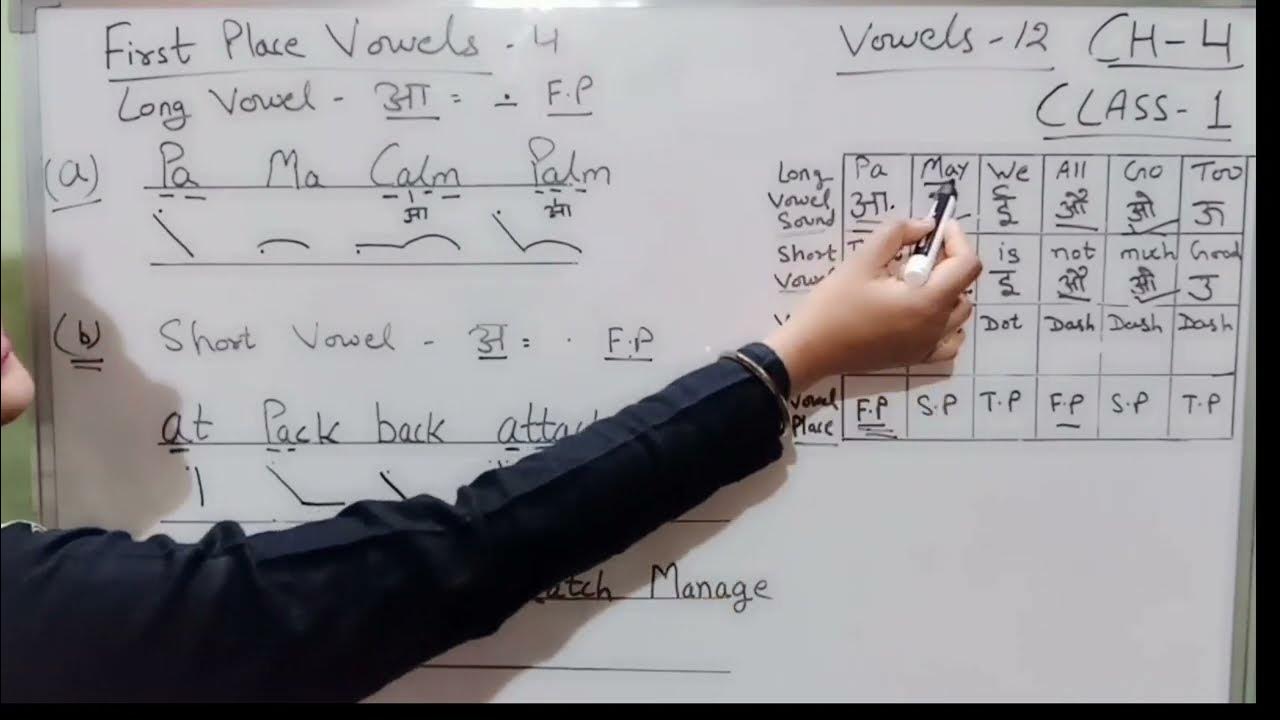 First Place Vowels - 4
Long Vowel - आ = F.P
(a) Pa Ma Calm Palm
आ आ
(b) Short Vowel - अ = . F.P
at Pack back
Manage
Vowels - 12 CH-4
CLASS-1
Long Vowel Sound
Pa May We All Go Too
आ. ई औ ओ ऊ
Short is not much Good
इ औ ओ उ
Dot Dash Dash Dash
Vowel Place
F.P S.P T.P F.P S.P T.P